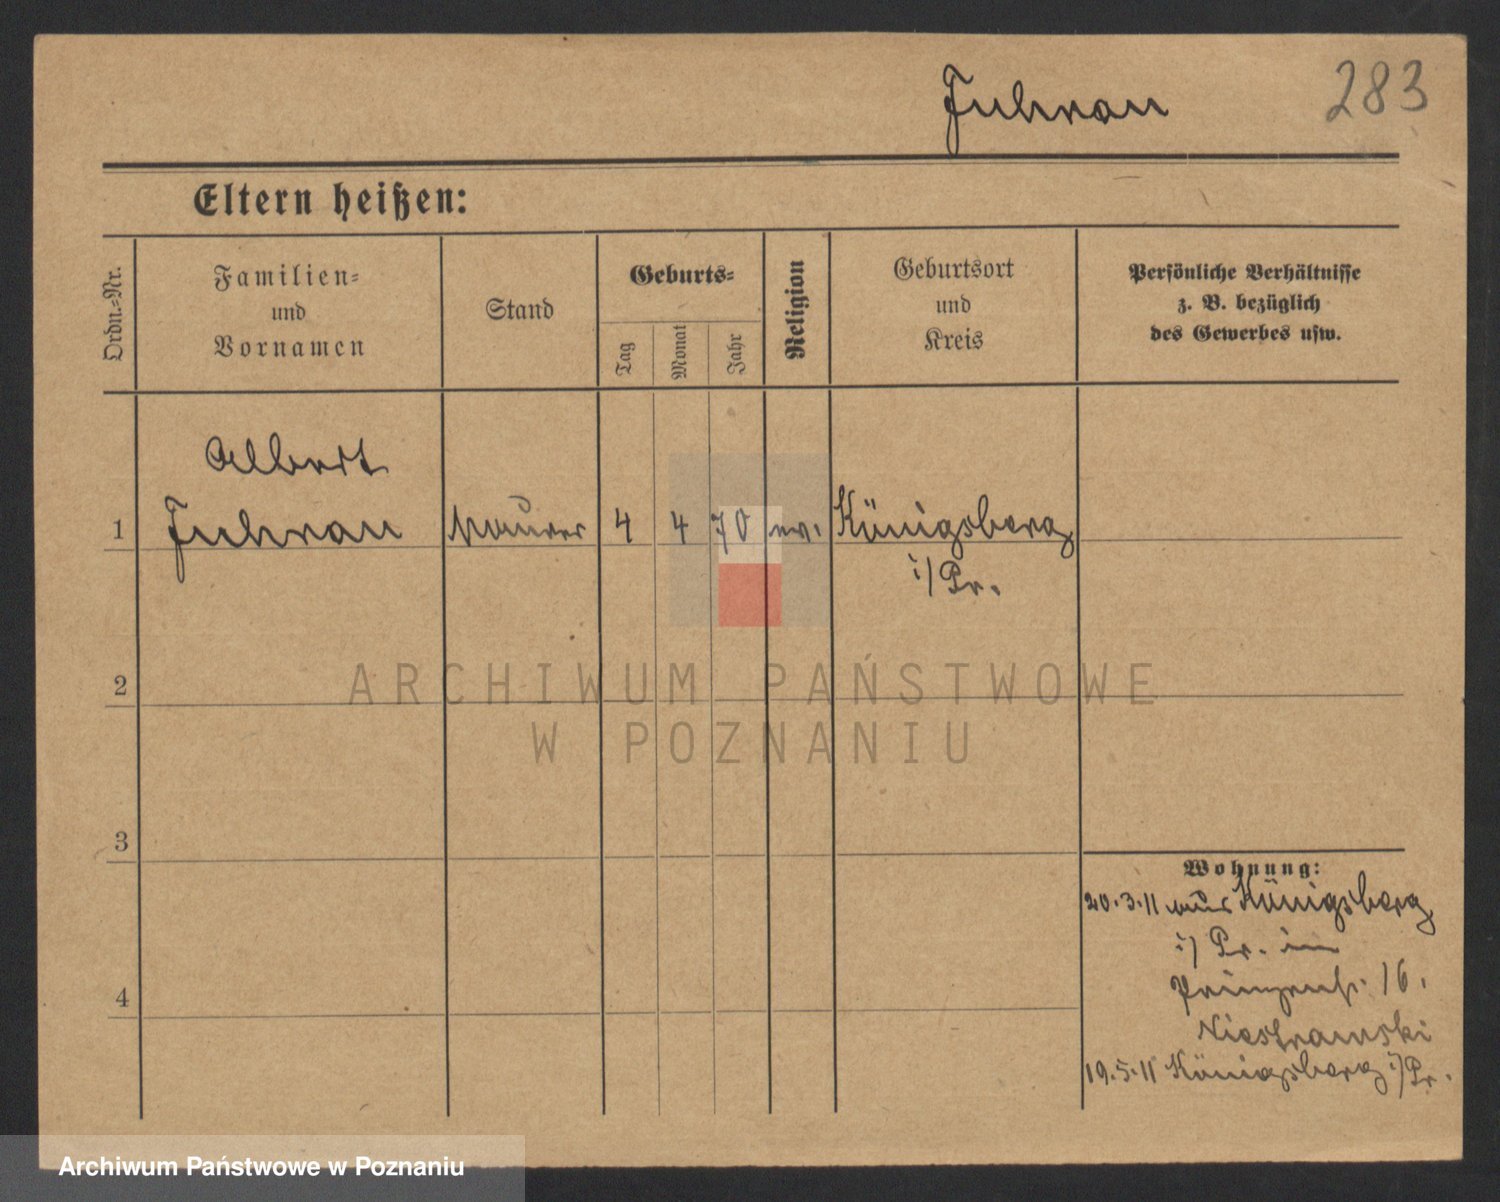 Fuhrau
283
Eltern heißen:
Ordn.-Nr.
Familien-
und
Vornamen
Stand
Geburts-
Tag
Monat
Jahr
Religion
Geburtsort
und
Kreis
Persönliche Verhältnisse
z. B. bezüglich
des Gewerbes usw.
Albert
1 Fuhrau Maurer 4 4 70 ev. Königsberg
i/Pr.
2
ARCHIWUM PAŃSTWOWE
W POZNANIU
3
Wohnung:
20.3.11 aus Königsberg
i/ Pr. im
4
Prinzenst. 16.
19.5.11 Königsberg i/Pr.
Archiwum Państwowe w Poznaniu